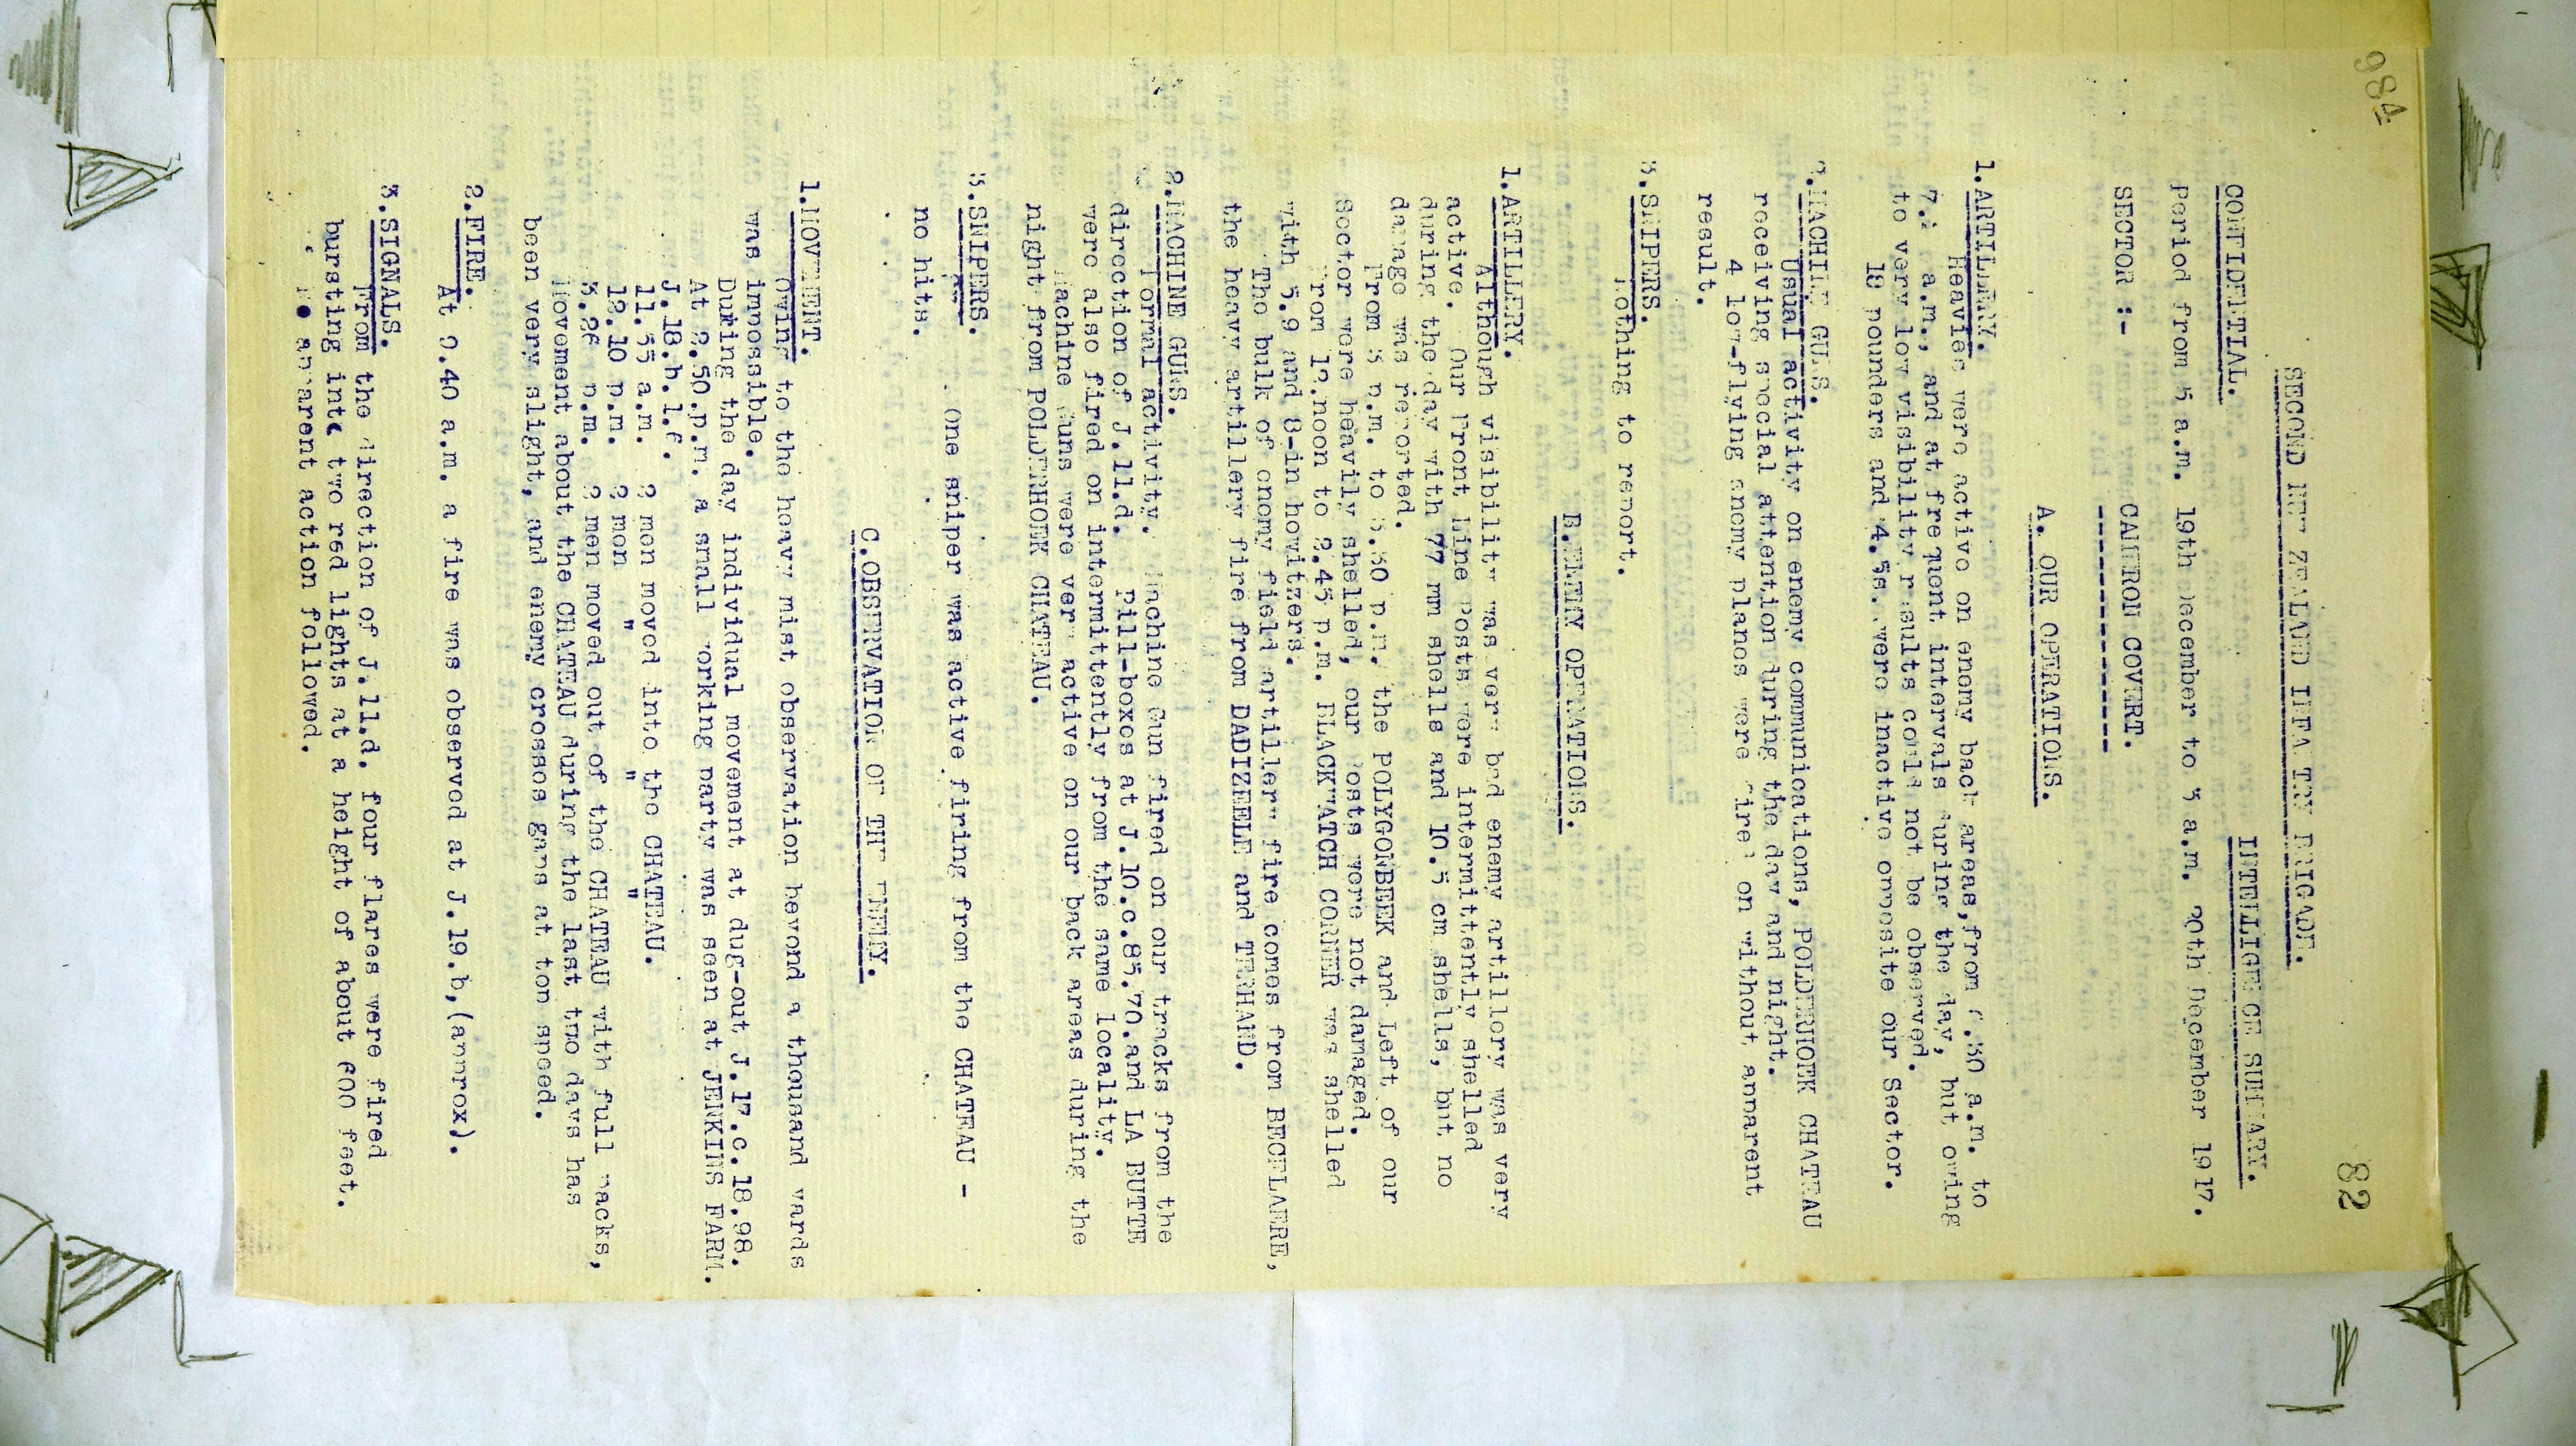 984
82
SECOND NEW ZEALAND INFANTRY BRIGADE.
CONFIDENTIAL. INTELLIGENCE SUMMARY.
Period from 5 a.m. 19th December to 5 a.m. 20th December 1917.
SECTOR :- CAMERON COVERT.
A. OUR OPERATIONS.
1.ARTILLERY.
Heavies were active on enemy back areas,from 6.30 a.m. to
a.m., and at frequent intervals during the day, but owing
to very low visibility results could not be observed.
18 pounders and 4.5s. were inactive opposite our Sector.
2.MACHINE GUNS.
Usual activity on enemy communications, POLDERHOEK CHATEAU
receiving special attention during the day and night.
4 low-flying enemy planes were fired on without apparent
result.
3.SNIPERS.
Nothing to report.
B.ENEMY OPERATIONS.
1.ARTILLERY.
Although visibility was very bad enemy artillery was very
active. Our Front Line Posts were intermittently shelled
during the day with 77 mm shells and 10.5 cm shells, but no
damage was reported.
From 3 p.m. to 3.30 p.m. the POLYGONBEEK and Left of our
Sector were heavily shelled, our Posts were not damaged.
From 12.noon to 2.45 p.m. BLACKWATCH CORNER was shelled
with 5.9 and 8-in howitzers.
The bulk of enemy field artillery fire comes from BECELAERE,
the heavy artillery fire from DADIZEELE and TERHAND.
2.MACHINE GUNS.
Normal activity. Machine Gun fired on our tracks from the
direction of J.11.d. Pill-boxes at J.10.c.85.70.and LA BUTTE
were also fired on intermittently from the same locality.
Machine Guns were very active on our back areas during the
night from POLDERHOEK CHATEAU.
3.SNIPERS.
One sniper was active firing from the CHATEAU -
no hits.
C.OBSERVATION OF THE ENEMY.
1.MOVEMENT.
Owing to the heavy mist observation beyond a thousand yards
was impossible.
During the day individual movement at dug-out J.17.c.18.98.
At 2.50.p.m. a small working party was seen at JENKINS FARM.
J.18.b.1.6.
11.35 a.m. 2 men moved into the CHATEAU.
12.10 p.m. 2 men " " "
3.26 p.m. 2 men moved out of the CHATEAU with full packs,
Movement about the CHATEAU during the last two days has
been very slight, and enemy crosses gaps at top speed.
2.FIRE.
At 9.40 a.m. a fire was observed at J.19.b,(approx).
3.SIGNALS.
From the direction of J.11.d. four flares were fired
bursting into two red lights at a height of about 600 feet.
No apparent action followed.